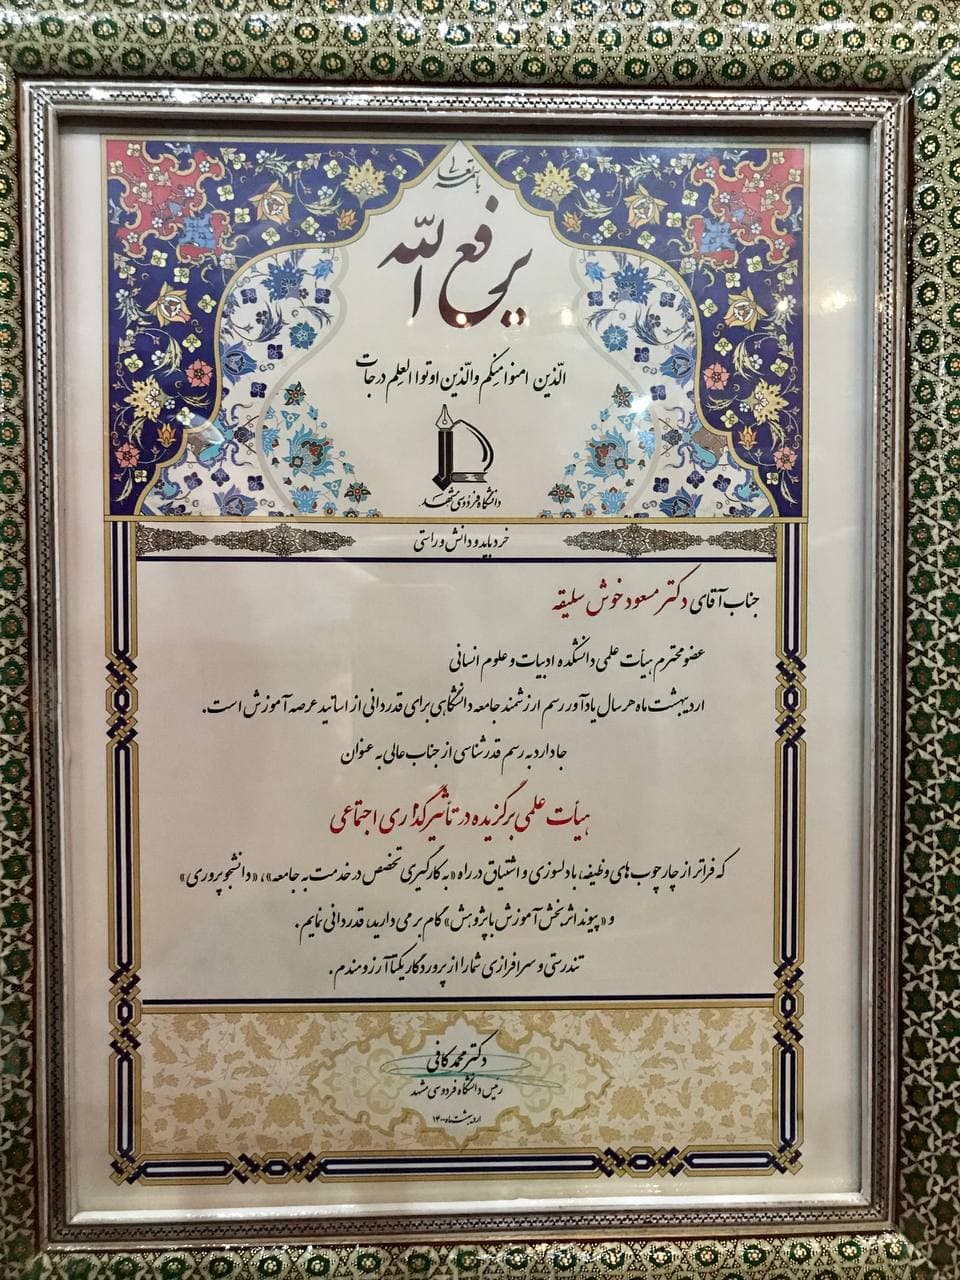 باسمه تعالی
یرفع الله
الّذین امنوا منکم والّذین اوتوا العلم درجات
دانشگاه فردوسی مشهد
خرد باید و دانش و راستی
جناب آقای دکتر مسعود خوش سلیقه
عضو محترم هیأت علمی دانشکده ادبیات و علوم انسانی
اردیبهشت ماه هر سال یادآور رسم ارزشمند جامعه دانشگاهی برای قدردانی از اساتید عرصه آموزش است.
جا دارد به رسم قدرشناسی از جناب عالی به عنوان
هیأت علمی برگزیده در تأثیرگذاری اجتماعی
که فراتر از چارچوب های وظیفه، با دلسوزی و اشتیاق در راه «به کارگیری تخصص در خدمت به جامعه»، «دانشجوپروری»
و «پیوند اثربخش آموزش با پژوهش» گام بر می دارید، قدردانی نمایم.
تندرستی و سرافرازی شما را از پروردگار یکتا آرزومندم.
دکتر محمد کافی
رئیس دانشگاه فردوسی مشهد
اردیبهشت ماه ۱۴۰۰